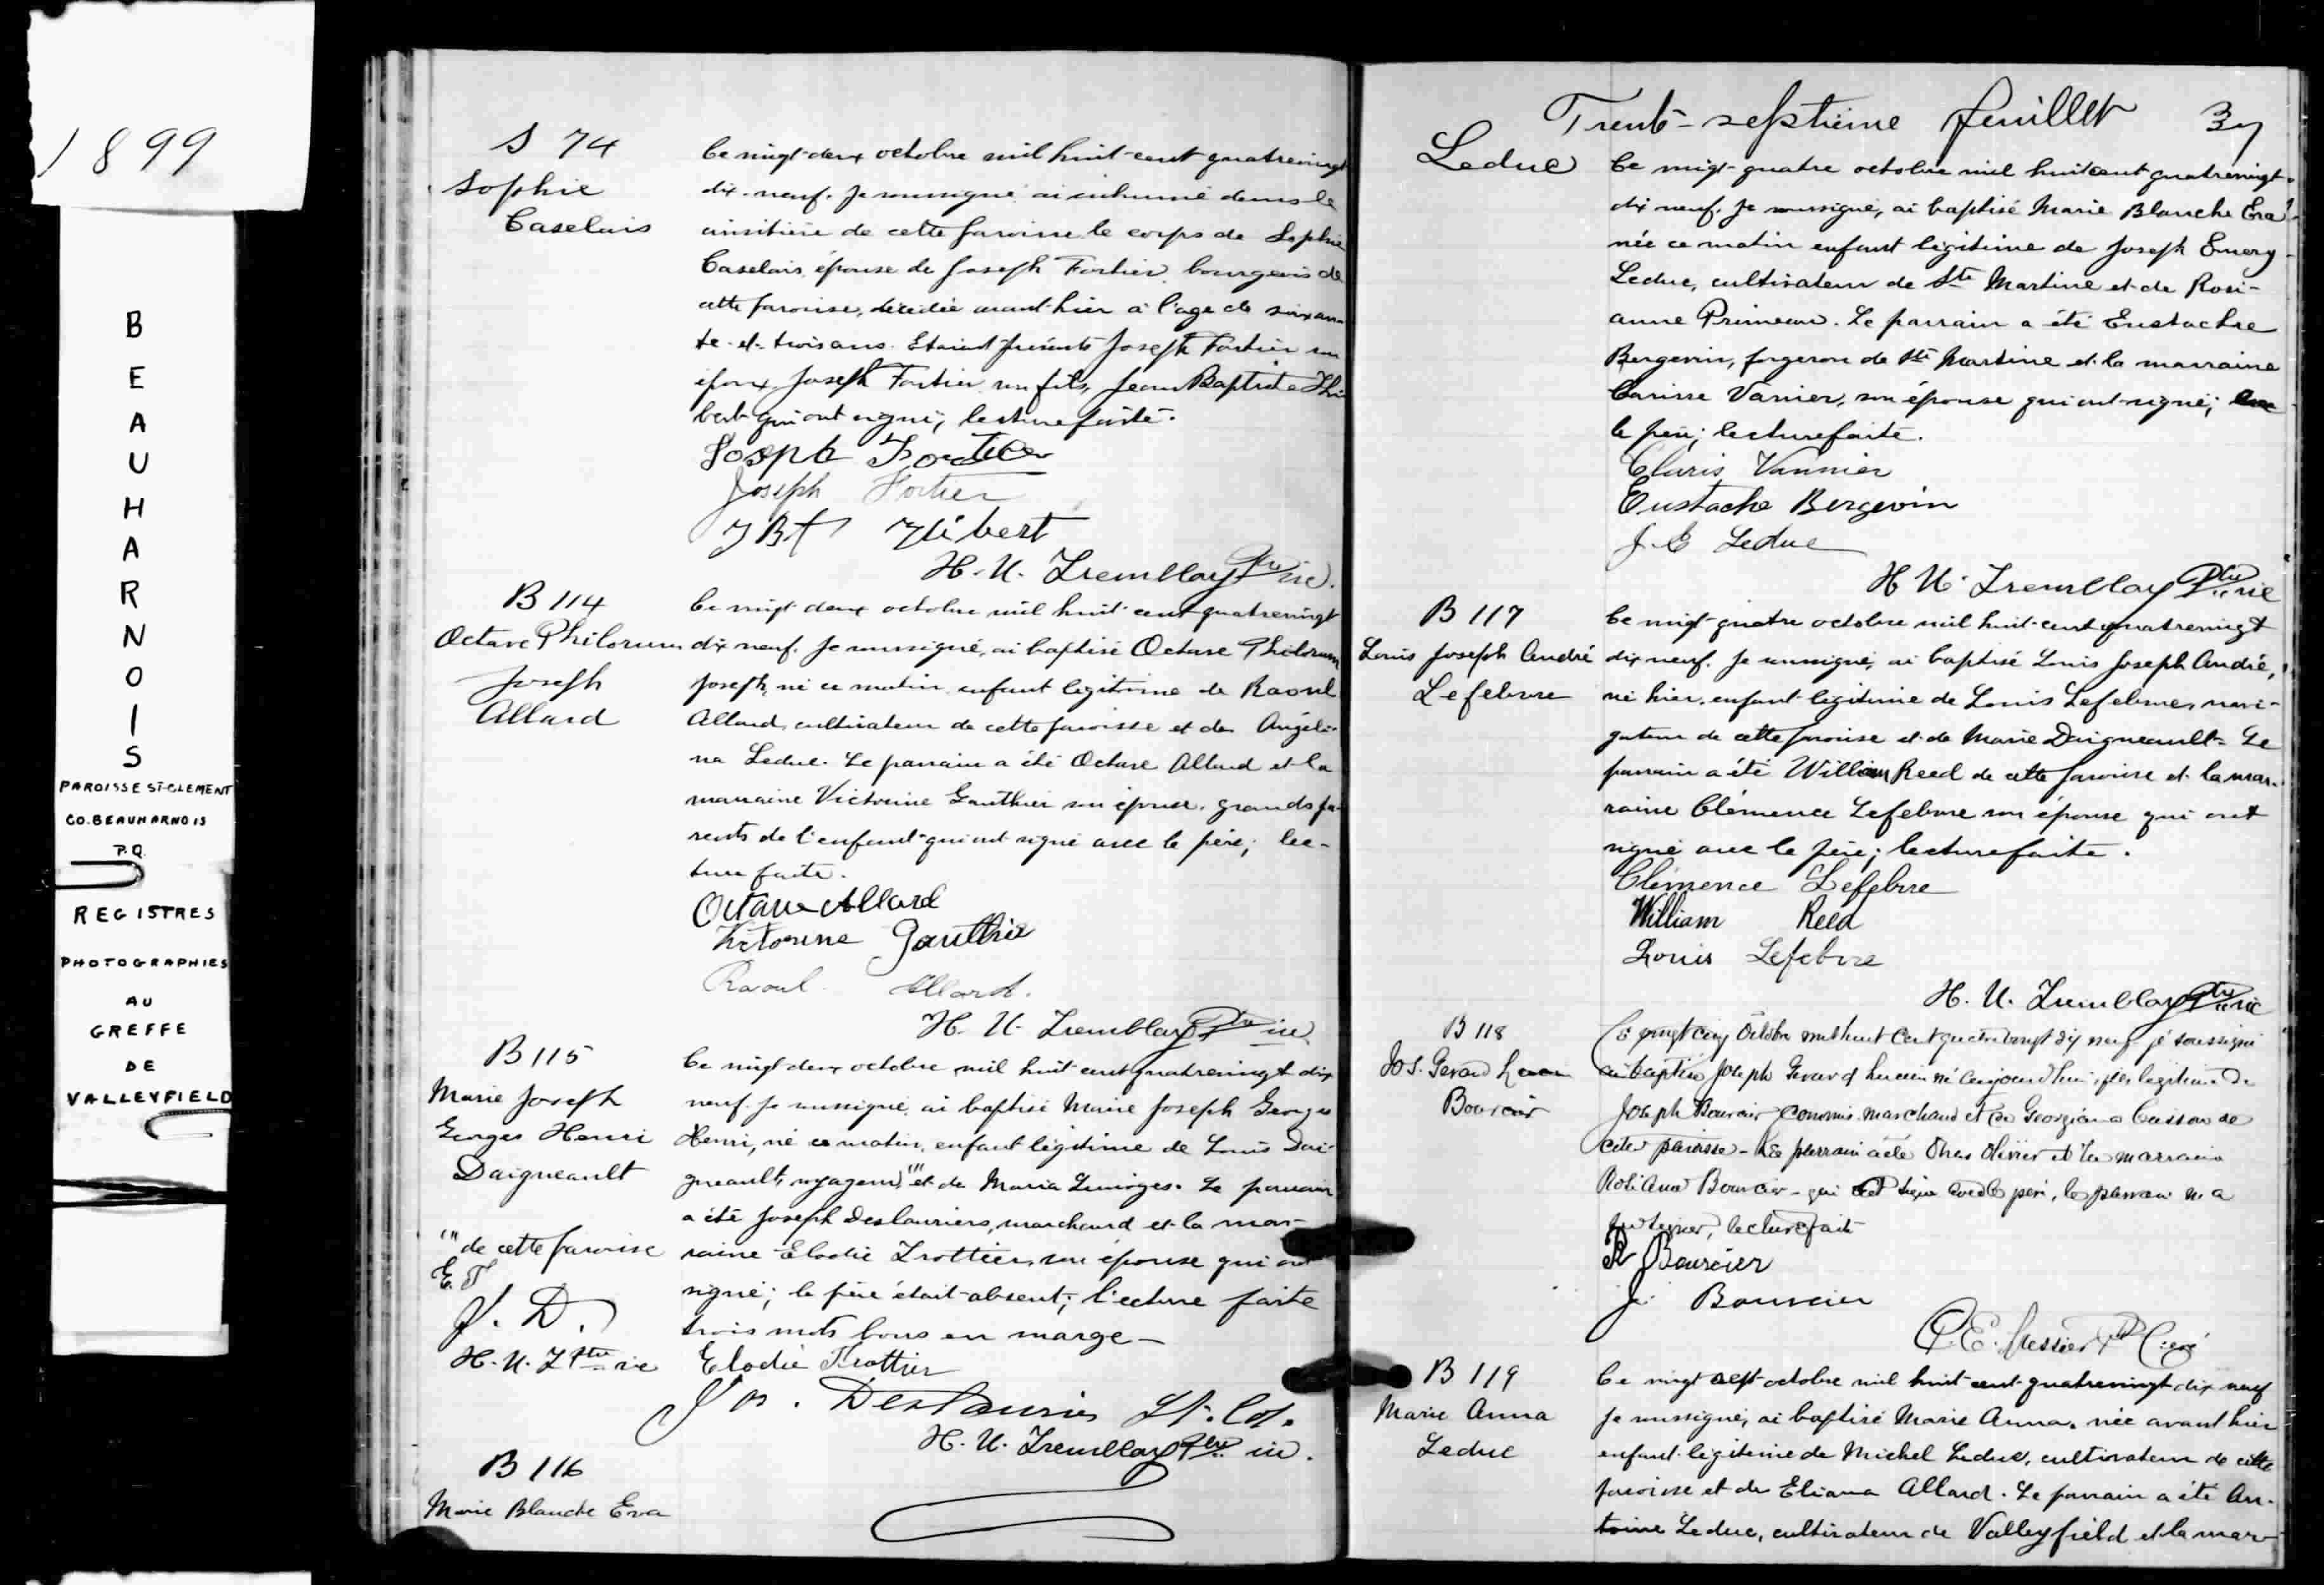 1899
BEAUHARNOIS
PAROISSE ST-CLEMENT
CO. BEAUHARNOIS
P.Q.
REGISTRES
PHOTOGRAPHIES
AU
GREFFE
DE
VALLEYFIELD
S 74
Sophie
Caselais
Ce vingt-deux octobre mil huit-cent quatrevingt
dix-neuf. Je soussigné ai inhumé dans le
cimitière de cette paroisse le corps de Sophie
Caselais, épouse de Joseph Fortier bourgeois de
cette paroisse, décédée avant-hier à l'age de soixan-
te-et-trois ans. Etaient présents Joseph Fortier son
époux, Joseph Fortier son fils, Jean Baptiste Thi
bert qui ont signé; lecture faite.
Joseph Fortier
Joseph Fortier
J Bt Thibert
H. U. Tremblay Ptre vic.
B 114
Octave Philorum
Joseph
Allard
Ce vingt-deux octobre mil huit-cent-quatrevingt
dix neuf. Je soussigné, ai baptisé Octave Philorum
Joseph, né ce matin, enfant légitime de Raoul
Allard, cultivateur de cette paroisse et de Angéli-
na Leduc. Le parrain a été Octave Allard et la
marraine Victorine Gauthier son épouse, grands pa-
rents de l'enfant qui ont signé avec le père; lec-
ture faite.
Octave Allard
Victorine Gauthier
Raoul Allard.
H. U. Tremblay Ptre vic.
B 115
Marie Joseph
Georges Henri
Daigneault
Ce vingt-deux octobre mil huit-cent quatrevingt dix
neuf. Je soussigné, ai baptisé Marie Joseph Georges
Henri, né ce matin, enfant légitime de Louis Dai-
gneault, voyageur, et de Maria Limoges. Le parrain
a été Joseph Deslauriers, marchand et la mar-
raine Elodie Trottier, son épouse qui ont
signé; le père était absent; lecture faite
trois mots bons en marge—
de cette paroisse
E. T
J. D.
H. U. T Ptre vic
Elodie Trottier
Jos. Deslauriers Lt. Col.
H. U. Tremblay Ptre vic.
B 116
Marie Blanche Eva
Trente-septième feuillet 37
Leduc
Ce vingt-quatre octobre mil huit cent quatrevingt-
dix neuf. Je soussigné, ai baptisé Marie Blanche Eva
née ce matin enfant légitime de Joseph Emery
Leduc, cultivateur de Ste Martine et de Rosi-
anne Primeau. Le parrain a été Eustache
Bergevin, forgeron de Ste Martine et la marraine
Clarisse Vanier, son épouse qui ont signé;
le père; lecture faite.
Claris Vannier
Eustache Bergevin
J. E Leduc
H U. Tremblay Ptre vic
B 117
Louis Joseph André
Lefebvre
Ce vingt-quatre octobre mil huit-cent quatrevingt
dix neuf. Je soussigné, ai baptisé Louis Joseph André,
né hier, enfant légitime de Louis Lefebvre, navi-
gateur de cette paroisse et de Marie Daigneault. Le
parrain a été William Reed de cette paroisse et la mar-
raine Clémence Lefebvre son épouse qui ont
signé avec le père; lecture faite.
Clémence Lefebvre
William Reed
Louis Lefebvre
H. U. Tremblay Ptre vic
B 118
Jos. Gerard
Bourcier
Ce vingt cinq Octobre mil huit Cent quatre vingt dix neuf je soussigné
ai baptisé Joseph Gerard Lucien né aujourd'hui, fils légitime de
Joseph Bourcier Commis-marchand et de Georgiana Cuisson de
cette paroisse - Le parrain a été Chas Olivier et la marraine
Rosi Anna Bourcier - qui a signé avec le père, le parrain n'a
pu signer, lecture faite
R Bourcier
J. Bourcier
C. E. Messier Curé
B 119
Marie Anna
Leduc
Ce vingt sept octobre mil huit-cent quatrevingt-dix neuf
Je soussigné, ai baptisé Marie Anna, née avant hier
enfant légitime de Michel Leduc, cultivateur de cette
paroisse et de Eliana Allard. Le parrain a été An-
toine Leduc, cultivateur de Valleyfield et la mar-